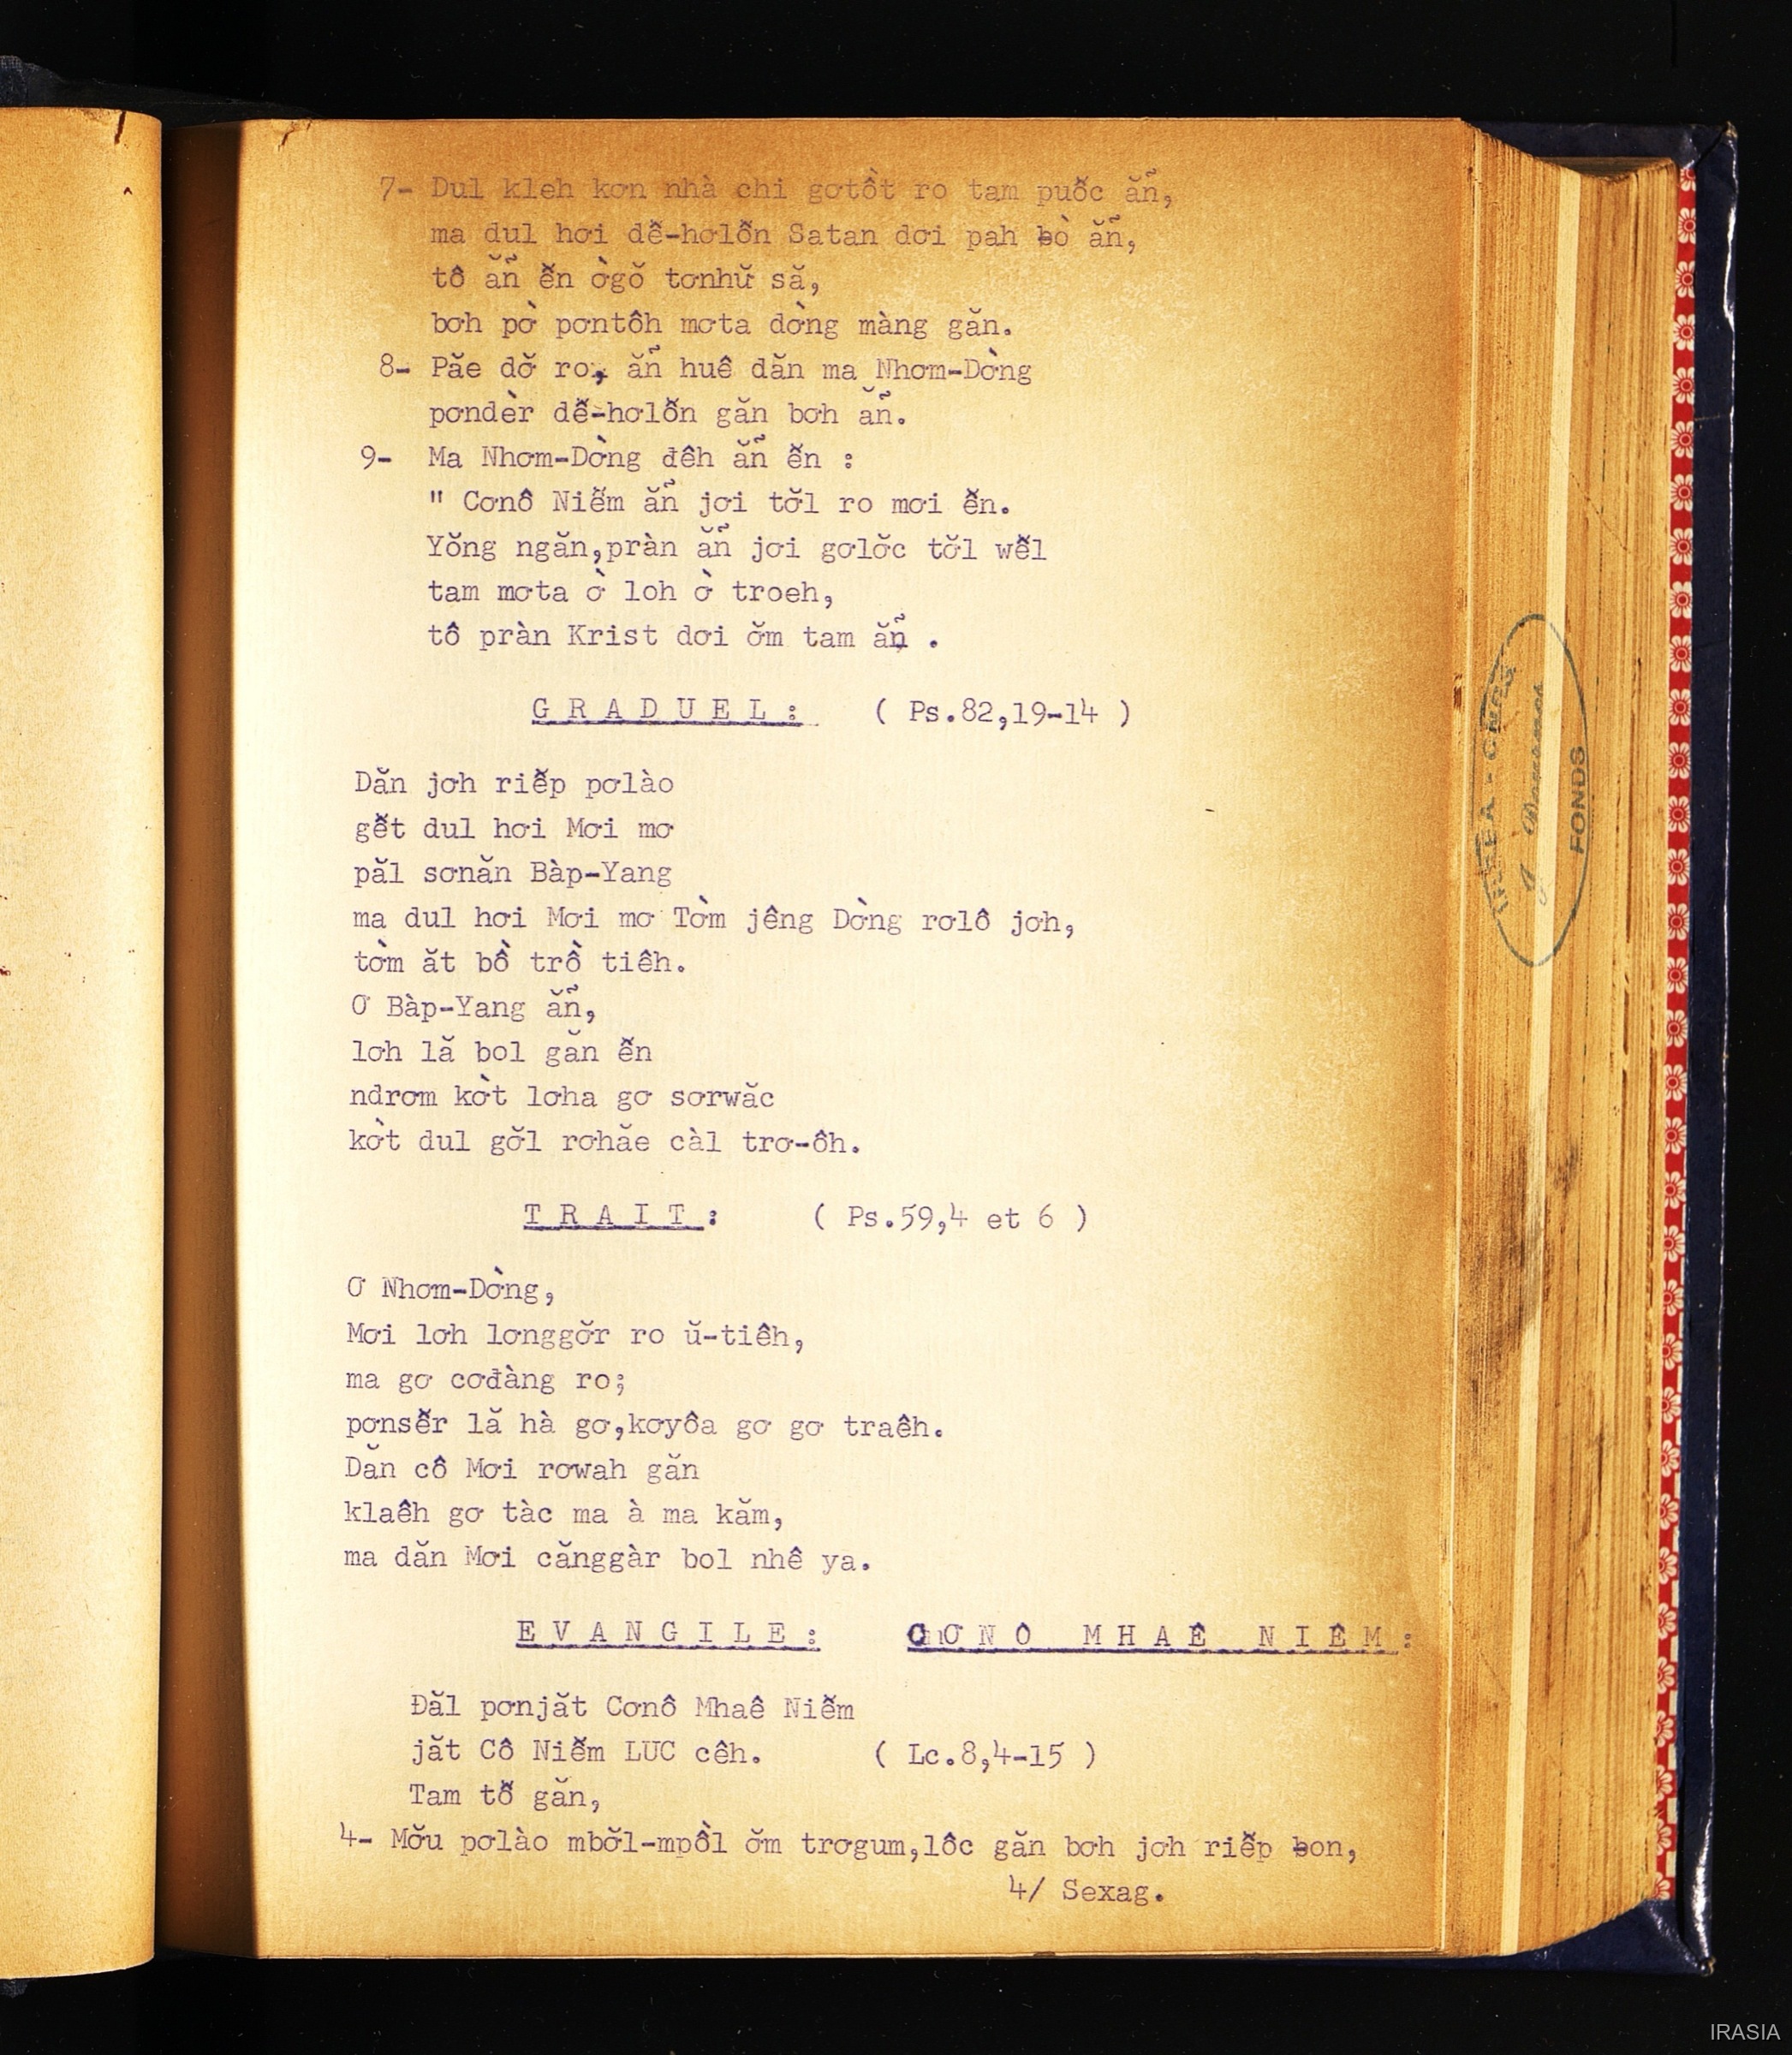 7- Dul kleh kơn nhà chi gơtôt ro tam puôc ăñ,
ma dul hơi dê̆-hơlô̆n Satan dơi pah ƀò ăñ,
tô ăñ ê̆n ờgŏ tơnhử să,
bơh pờ pơntôh mơta dờng màng găn.
8- Păe dơ̆ ro, ăñ huê dăn ma Nhơm-Dờng
pơndèr dê̆-hơlô̆n găn bơh ăñ.
9- Ma Nhơm-Dờng đêh ăñ ê̆n :
" Cơnô Niê̆m ăñ jơi tơ̆l ro mơi ê̆n.
Yŏng ngăn,pràn ăñ jơi gơlơ̆c tơ̆l wê̆l
tam mơta ờ loh ờ troeh,
tô pràn Krist dơi ơ̆m tam ăñ .
G R A D U E L : ( Ps.82,19-14 )
Dăn jơh riê̆p pơlào
gê̆t dul hơi Mơi mơ
păl sơnăn Bàp-Yang
ma dul hơi Mơi mơ Tờm jêng Dờng rơlô jơh,
tờm ăt bồ trồ tiêh.
Ơ Bàp-Yang ăñ,
lơh lă bol găn ê̆n
ndrơm kờt lơha gơ sơrwăc
kờt dul gơ̆l rơhăe càl trơ-ôh.
T R A I T : ( Ps.59,4 et 6 )
Ơ Nhơm-Dờng,
Mơi lơh lơnggơ̆r ro ŭ-tiêh,
ma gơ cơđàng ro;
pơnsê̆r lă hà gơ,kơyôa gơ gơ traêh.
Dăn cô Mơi rơwah găn
klaêh gơ tàc ma à ma kăm,
ma dăn Mơi cănggàr bol nhê ya.
E V A N G I L E : C Ơ N Ô M H A Ê N I Ê M :
Đăl pơnjăt Cơnô Mhaê Niê̆m
jăt Cô Niê̆m LUC cêh. ( Lc.8,4-15 )
Tam tô̆ găn,
4- Mơ̆u pơlào mbơ̆l-mpồl ơ̆m trơgum,lôc găn bơh jơh riê̆p ƀon,
4/ Sexag.
FONDS
IRASIA